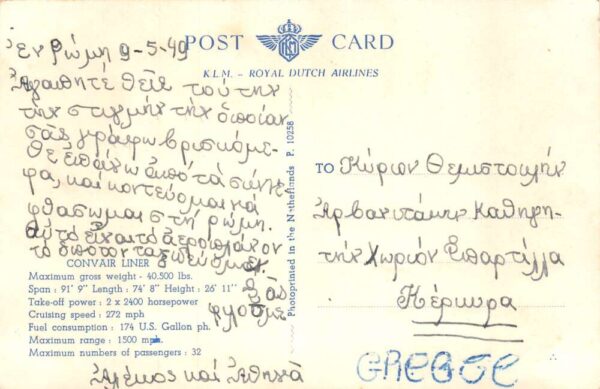 Ἐν Ρώμη 9-5-49
POST CARD
K.L.M. - ROYAL DUTCH AIRLINES
Ἀγαπητέ θεῖε τούτην
τήν στιγμήν τήν ὁποίαν
σᾶς γράφω βρισκόμε-
θε ἐπάνω ἀπό τά σύννε
φα, καί κοντεύομαι νά
φθάσωμαι στή ρώμη.
αὐτό εἶναι τό ἀεροπλάνον
τό ὁποῖον ταξιδεύομεν.
Σᾶς
φιλοῦμε
Ἀλέκος καί Ἀθηνᾶ
CONVAIR LINER
Maximum gross weight - 40.500 lbs.
Span : 91' 9" Length : 74' 8" Height : 26' 11"
Take-off power : 2 x 2400 horsepower
Cruising speed : 272 mph
Fuel consumption : 174 U.S. Gallon ph.
Maximum range : 1500 mph.
Maximum numbers of passengers : 32
Photoprinted in the Netherlands P. 10258
TO Κύριον Θεμιστοκλῆν
Ἀρβανιτάκην Καθηγη-
τήν Χωρίον
Κέρκυρα
GREECE